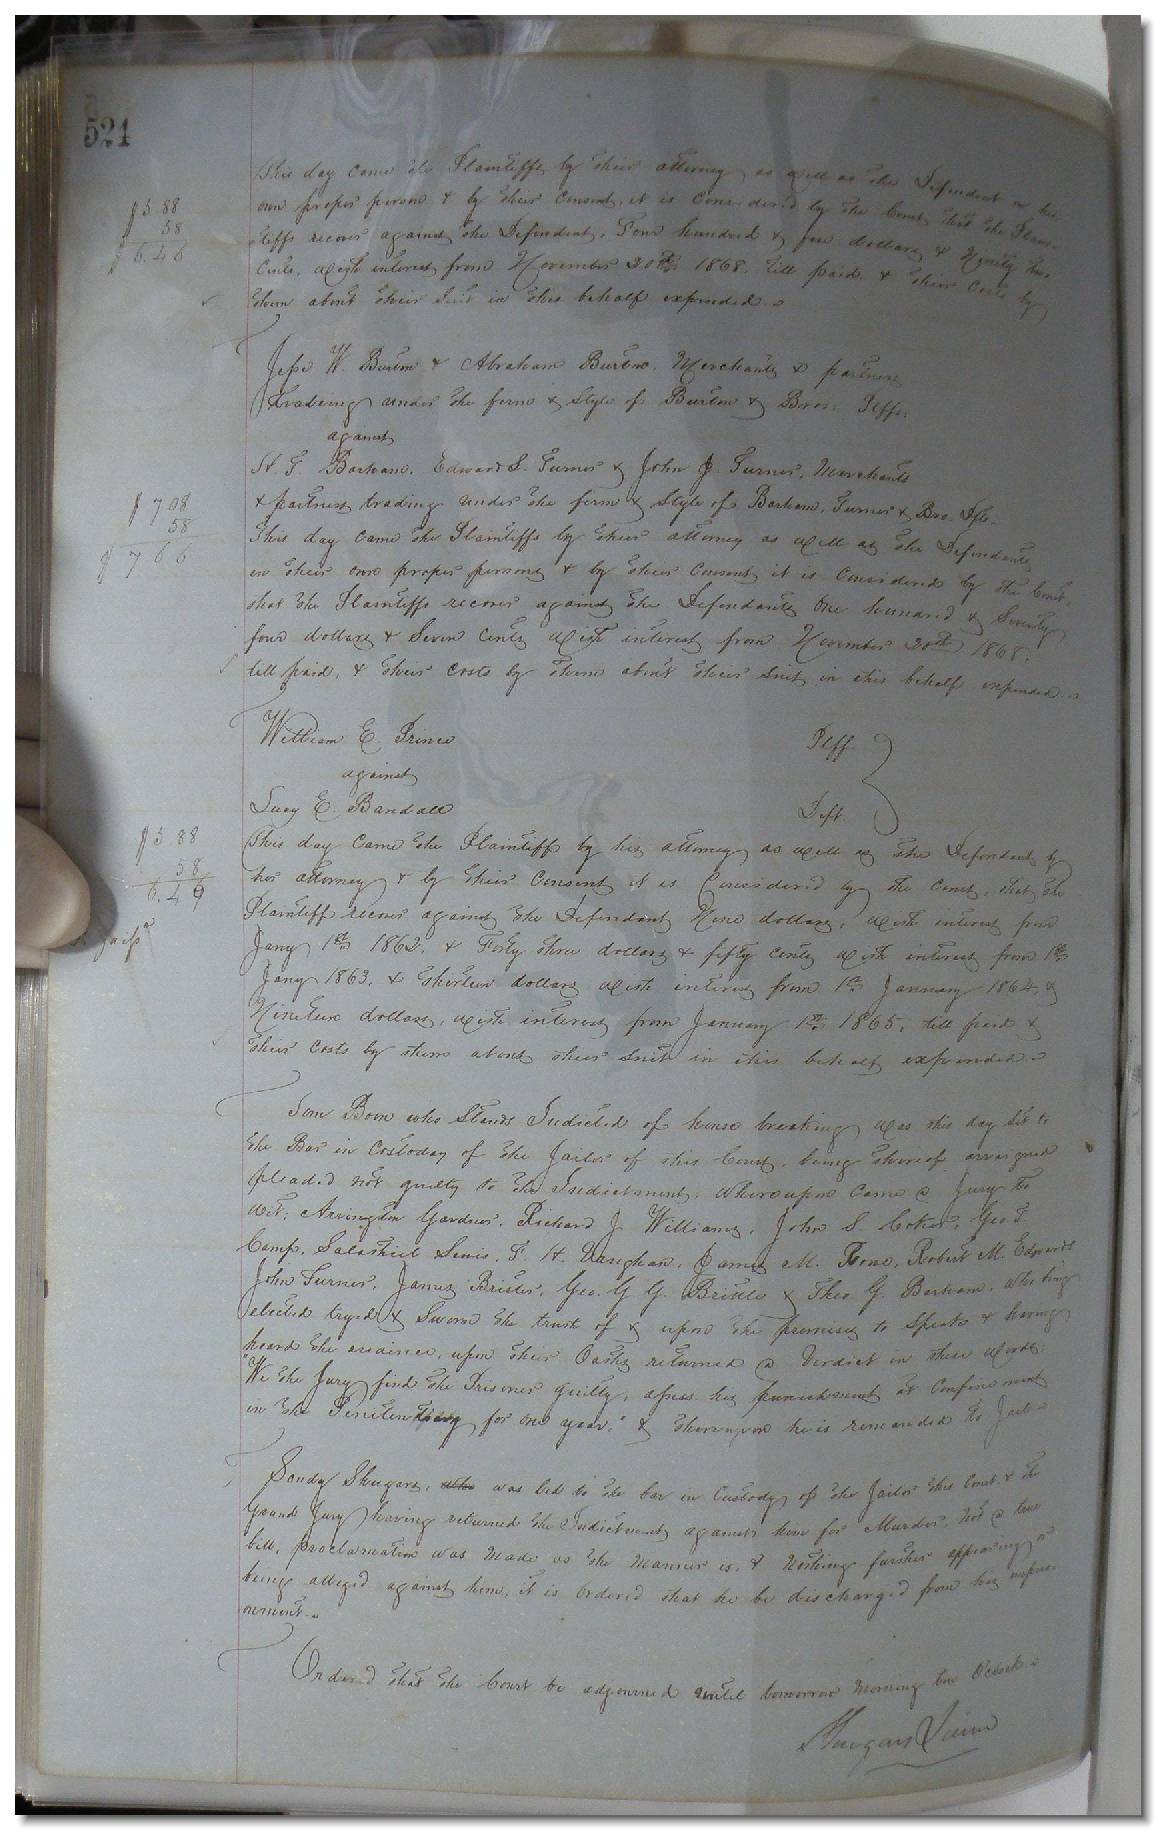 524
This day came the Plaintiffs by their attorney as well as the Defendant in his
own proper person & by their Consent, it is Considered by the Court that the Plain-
tiffs recover against the Defendant, Four hundred & five dollars & Ninety two
Cents, with interest from November 30th 1868. till paid. & their Costs by
them about their Suit in this behalf expended.
$5 88
58
$6.46
Jesse W. Burton & Abraham Burton. Merchants & partners
trading under the firm & Style of Burton & Bros. Plffs.
against
Barham, Edward S. Turner & John J. Turner, Merchants
& partners trading under the firm & Style of Barham, Turner & Bro. Dfts.
$7 08
58
$7 66
This day came the Plaintiffs by their attorney as well as the Defendants
in their own proper persons & by their Consent it is Considered by the Court,
that the Plaintiffs recover against the Defendants One hundred & Seventy
four dollars & Seven Cents with interest from November 30th 1868.
till paid, & their Costs by them about their Suit in this behalf expended.
William E. Prince Plff.
against
Lucy E. Bandall Deft
$5 88
58
6.49
This day Came the Plaintiff by his attorney as well as the Defendant by
her attorney & by their Consent it is Considered by the Court, that the
Plaintiff recover against the Defendant Nine dollars, with interest from
Jany 1st 1862. & Forty three dollars & fifty cents with interest from 1st
Jany 1863. & thirteen dollars with interest from 1st January 1864 &
Nineteen dollars, with interest from January 1st 1865, till paid &
their Costs by them about their Suit in this behalf expended.
Sam Boon who Stands Indicted of house breaking was this day led to
the Bar in Custoday of the Jailor of this Court. being thereof arraigned
plead.d not guilty to the Indictment; Whereupon Came a Jury to
wit; Arrington Gardner, Richard J. Williams, John S. Coker, Geo T
Camp. Salathiel Lewis, F. H. Vaughan, James M. Rone, Robert M. Edwards
John Turner, James Brister, Geo. G. G. Brittle & Theo. G. Barham, who being
elected tryed & Sworn the truth of & upon the premises to Speak & having
heard the evidence, upon their Oaths returned a Verdict in these words.
"We the Jury find the Prisoner guilty, his punishment at Confinement
in the Penitentiary for one year." & thereupon he is remanded to Jail
Sandy Shugars, who was led to the bar in Custody of the Jailor this Court. & the
Grand Jury having returned the Indictment against him for Murder, Not a true
bill, proclamation was Made as the Manner is, & Nothing further appearing or
being alleged against him, it is Ordered that he be discharged from his impris-
onment.
Ordered that the Court be adjourned until tomorrow Morning ten Oclock